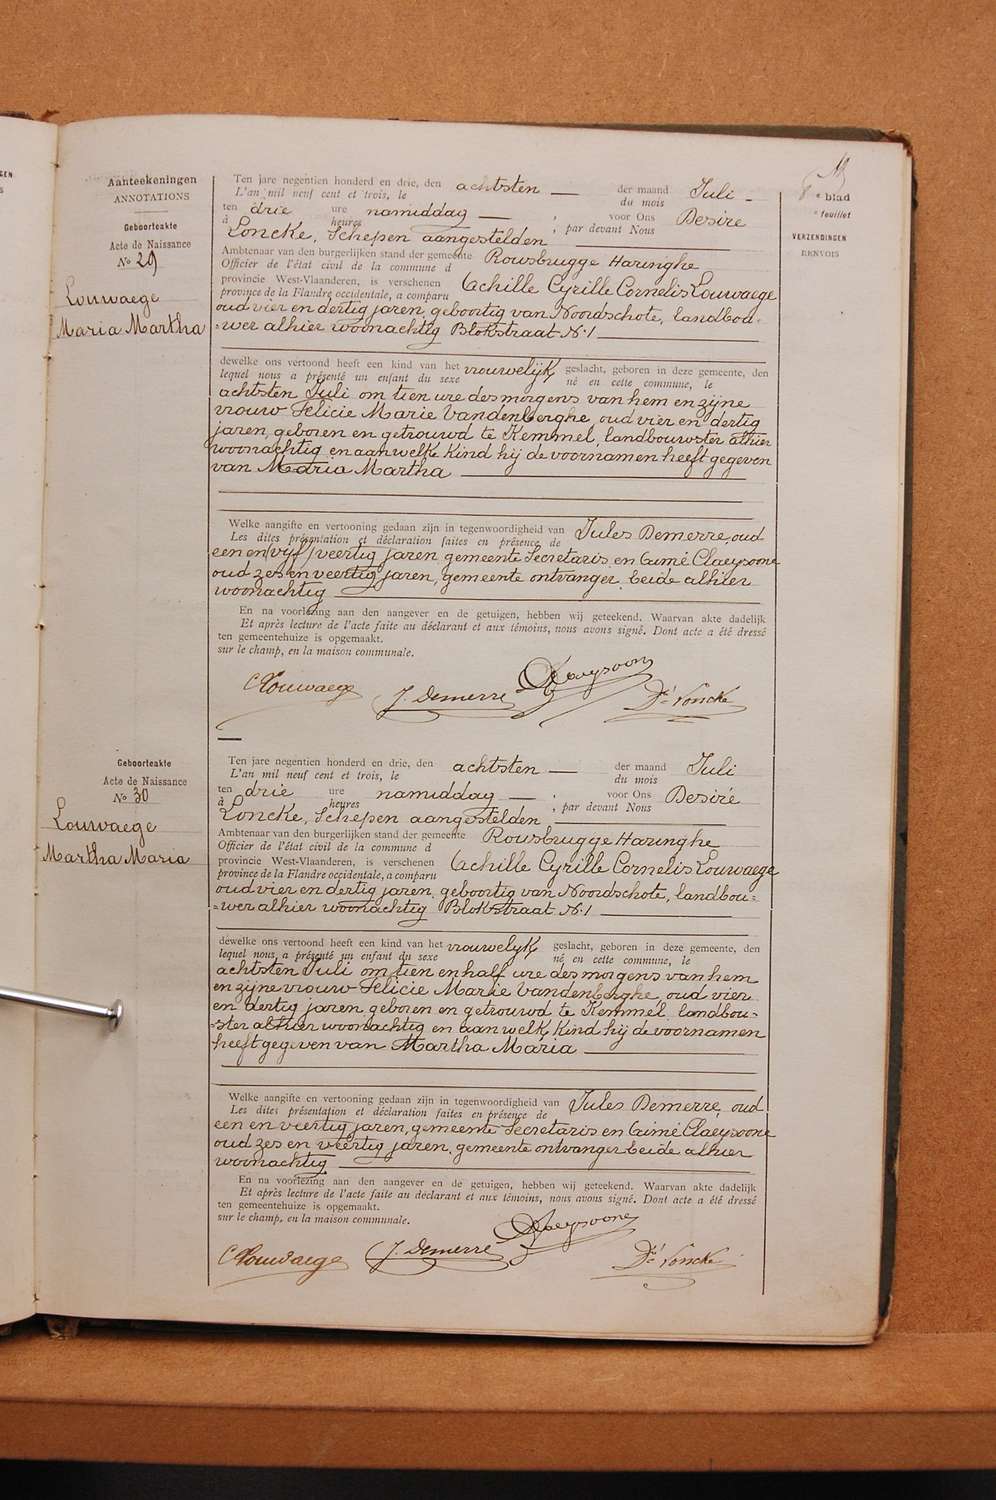 Aanteekeningen
ANNOTATIONS
Geboorteakte
Acte de Naissance
No 29
Louwaege
Maria Martha
blad
feuillet
VERZENDINGEN
RENVOIS
Ten jare negentien honderd en drie, den achtsten — der maand Juli -
L'an mil neuf cent et trois, le du mois
ten drie ure namiddag — , voor Ons Desiré
à heures , par devant Nous
Loncke, Schepen aangestelden
Ambtenaar van den burgerlijken stand der gemeente Rousbrugge Haringhe
Officier de l'état civil de la commune d
provincie West-Vlaanderen, is verschenen Achille Cyrille Cornelis Louwaege
province de la Flandre occidentale, a comparu
oud vier en dertig jaren, geboortig van Noordschote, landbou-
-wer alhier woonachtig Blokstraat N. 1
dewelke ons vertoond heeft een kind van het vrouwelijk geslacht, geboren in deze gemeente, den
lequel nous a présenté un enfant du sexe né en cette commune, le
achtsten Juli om tien ure des morgens van hem en zijne
vrouw Felicie Marie Vandenberghe, oud vier en dertig
jaren, geboren en getrouwd te Kemmel, landbouwster alhier
woonachtig en aan welk kind hij de voornamen heeft gegeven
van Maria Martha
Welke aangifte en vertooning gedaan zijn in tegenwoordigheid van Jules Demerre, oud
Les dites présentation et déclaration faites en présence de
een en veertig jaren, gemeente Secretaris en Aimé Claeysoone
oud zes en veertig jaren, gemeente ontvanger beide alhier
woonachtig
En na voorlezing aan den aangever en de getuigen, hebben wij geteekend. Waarvan akte dadelijk
Et après lecture de l'acte faite au déclarant et aux témoins, nous avons signé. Dont acte a été dressé
ten gemeentehuize is opgemaakt.
sur le champ, en la maison communale.
CLouwaege J. Demerre Claeysoone Dré Loncke
Geboorteakte
Acte de Naissance
No 30
Louwaege
Martha Maria
Ten jare negentien honderd en drie, den achtsten — der maand Juli
L'an mil neuf cent et trois, le du mois
ten drie ure namiddag — , voor Ons Desiré
à heures , par devant Nous
Loncke, Schepen aangestelden
Ambtenaar van den burgerlijken stand der gemeente Rousbrugge Haringhe
Officier de l'état civil de la commune d
provincie West-Vlaanderen, is verschenen Achille Cyrille Cornelis Louwaege
province de la Flandre occidentale, a comparu
oud vier en dertig jaren, geboortig van Noordschote, landbou-
-wer alhier woonachtig Blokstraat N. 1
dewelke ons vertoond heeft een kind van het vrouwelijk geslacht, geboren in deze gemeente, den
lequel nous a présenté un enfant du sexe né en cette commune, le
achtsten Juli om tien en half ure des morgens van hem
en zijne vrouw Felicie Marie Vandenberghe, oud vier
en dertig jaren, geboren en getrouwd te Kemmel, landbou-
-ster alhier woonachtig en aan welk kind hij de voornamen
heeft gegeven van Martha Maria
Welke aangifte en vertooning gedaan zijn in tegenwoordigheid van Jules Demerre, oud
Les dites présentation et déclaration faites en présence de
een en veertig jaren, gemeente Secretaris en Aimé Claeysoone
oud zes en veertig jaren, gemeente ontvanger beide alhier
woonachtig
En na voorlezing aan den aangever en de getuigen, hebben wij geteekend. Waarvan akte dadelijk
Et après lecture de l'acte faite au déclarant et aux témoins, nous avons signé. Dont acte a été dressé
ten gemeentehuize is opgemaakt.
sur le champ, en la maison communale.
CLouwaege J. Demerre Claeysoone Dré Loncke